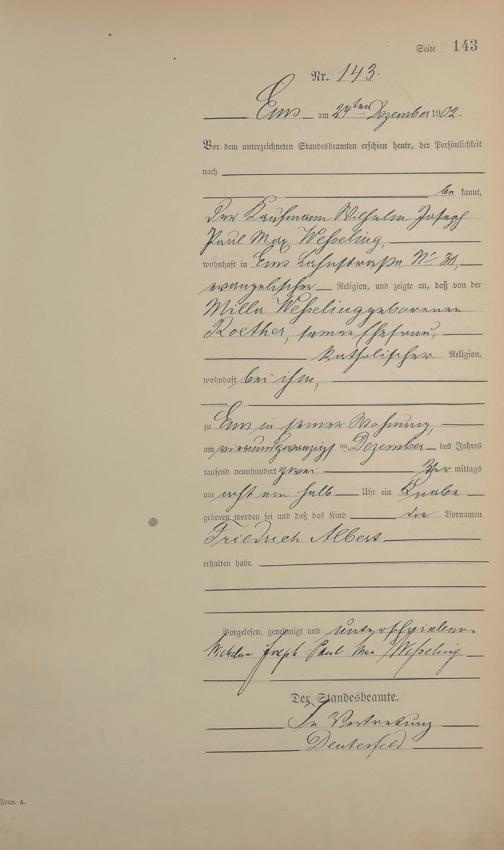 Seite 143
Nr. 143.
Ems am 24ten Dezember 1902.
Vor dem unterzeichneten Standesbeamten erschien heute, der Persönlichkeit
nach
be kannt,
der Kaufmann Wilhelm Joseph
Paul Max Weßeling,
wohnhaft in Ems Lahnstraße No 30,
evangelischer Religion, und zeigte an, daß von der
Milla Weßeling geborenen
Roether, seiner Ehefrau,
katholischer Religion,
wohnhaft bei ihm,
zu Ems in seiner Wohnung,
am vierundzwanzigsten Dezember des Jahres
tausend neunhundert zwei Vor mittags
um acht ein halb Uhr ein Knabe
geboren worden sei und daß das Kind die Vornamen
Friedrich Albert
erhalten habe.
Vorgelesen, genehmigt und unterschrieben
Wilhelm Joseph Paul Max Weßeling
Der Standesbeamte.
In Vertretung
Form. A.